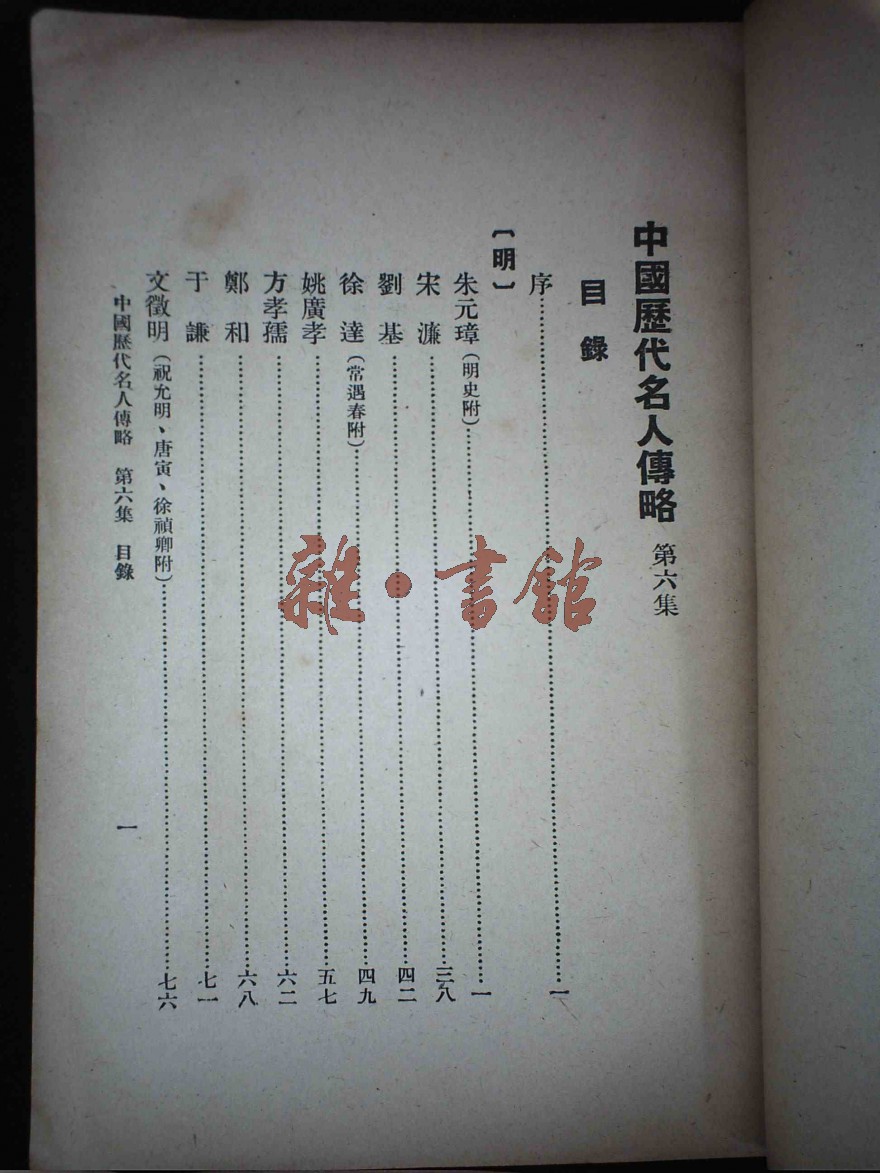 中國歷代名人傳略 第六集
目錄
序…………一
〔明〕
朱元璋(明史附)…………一
宋濂…………三八
劉基…………四二
徐達(常遇春附)…………四九
姚廣孝…………五七
方孝孺…………六二
鄭和…………六八
于謙…………七一
文徵明(祝允明、唐寅、徐禎卿附)…………七六
中國歷代名人傳略 第六集 目錄 一
雜·書館